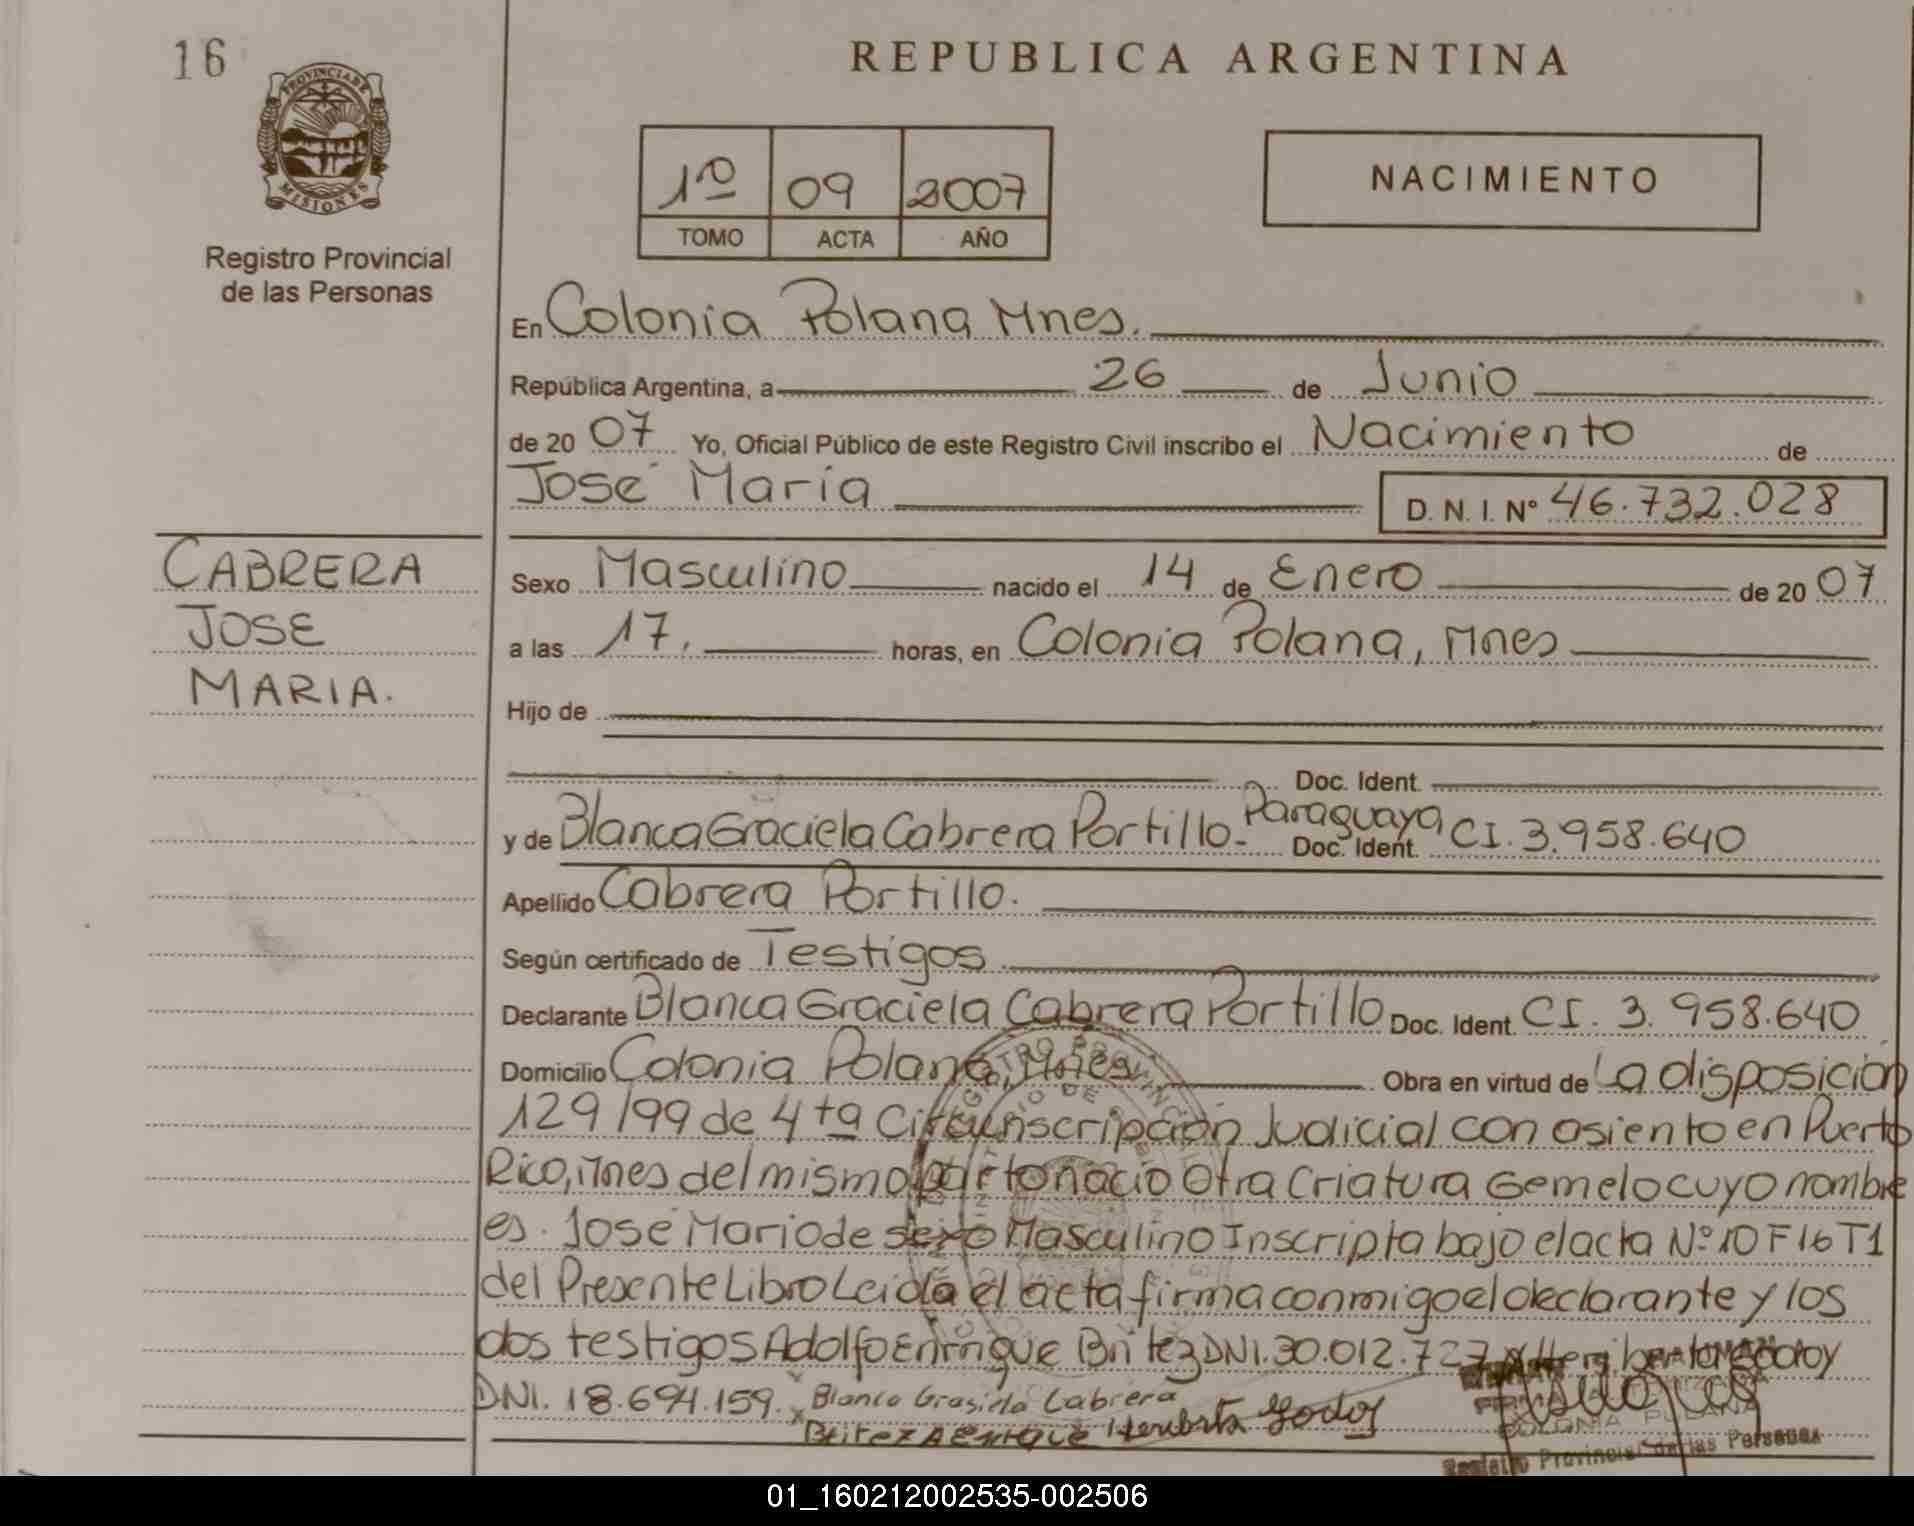 16
PROVINCIA DE
MISIONES
Registro Provincial
de las Personas
REPUBLICA ARGENTINA
1º 09 2007
TOMO ACTA AÑO
NACIMIENTO
En Colonia Polana Mnes.
República Argentina, a 26 de Junio
de 20 07 Yo, Oficial Público de este Registro Civil inscribo el Nacimiento de
José María
D. N. I. Nº 46.732.028
CABRERA
JOSE
MARIA.
Sexo Masculino nacido el 14 de Enero de 20 07
a las 17. horas, en Colonia Polana, Mnes
Hijo de
Doc. Ident.
y de Blanca Graciela Cabrera Portillo.- Paraguaya Doc. Ident. CI. 3.958.640
Apellido Cabrera Portillo.
Según certificado de Testigos
Declarante Blanca Graciela Cabrera Portillo Doc. Ident. CI. 3.958.640
Domicilio Colonia Polana, Mnes Obra en virtud de La disposición
129/99 de 4ta Circunscripción Judicial con asiento en Puerto
Rico, Mnes del mismo parto nacio Otra Criatura Gemelo cuyo nombre
es. José Mario de sexo Masculino Inscripta bajo el acta Nº 10 F16 T1
del Presente Libro Leida el acta firma conmigo el declarante y los
dos testigos Adolfo Enrrique Britez DNI. 30.012.727 y Heriberto Godoy
DNI. 18.694.159. Blanca Grasiela Cabrera
Britez A Enrique Heriberto Godoy
COLONIA POLANA
Registro Provincial de las Personas
01_160212002535-002506